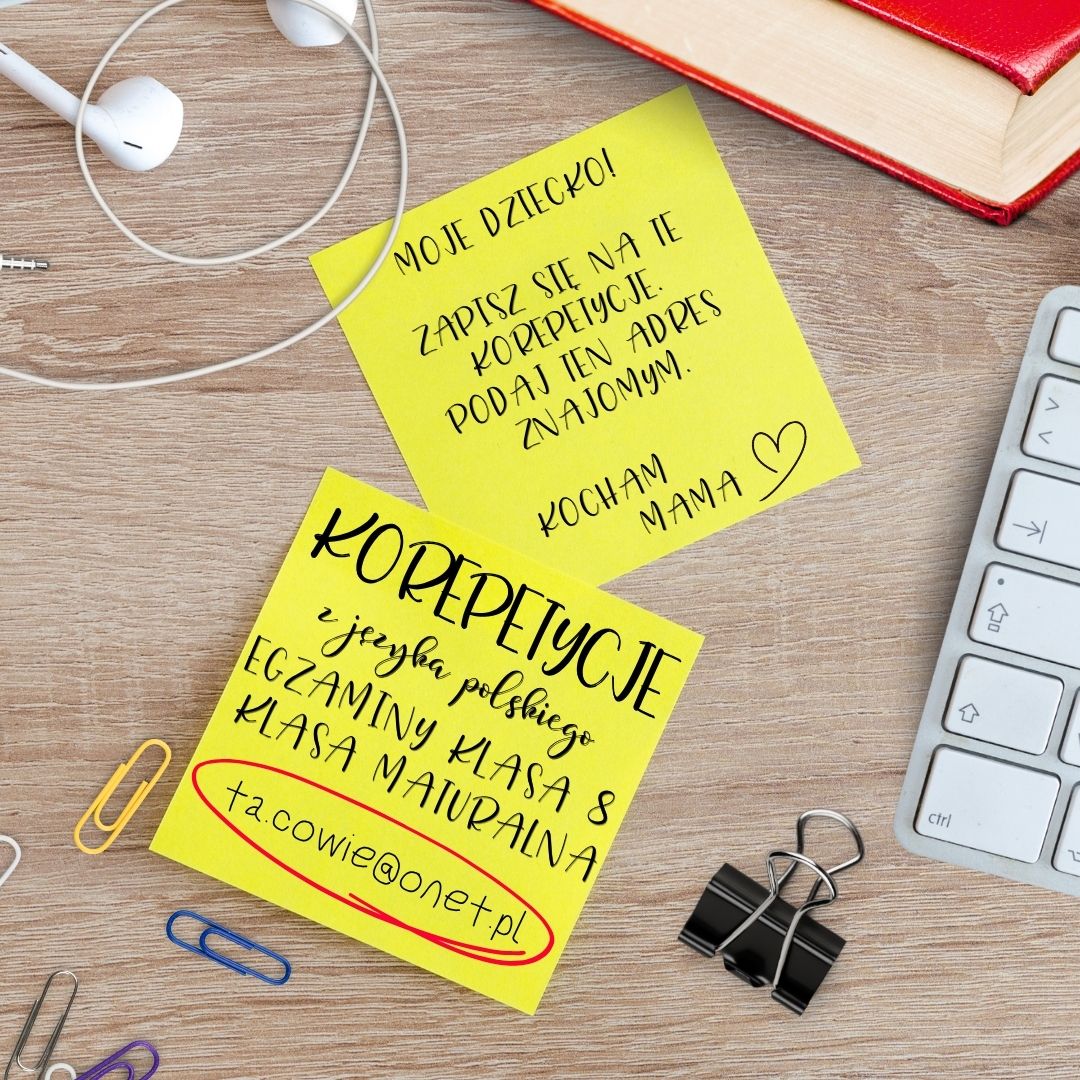 MOJE DZIECKO!
ZAPISZ SIĘ NA TE
KOREPETYCJE.
PODAJ TEN ADRES
ZNAJOMYM.
KOCHAM
MAMA
KOREPETYCJE
z języka polskiego
EGZAMINY KLASA 8
KLASA MATURALNA
ta.cowie@onet.pl
ctrl